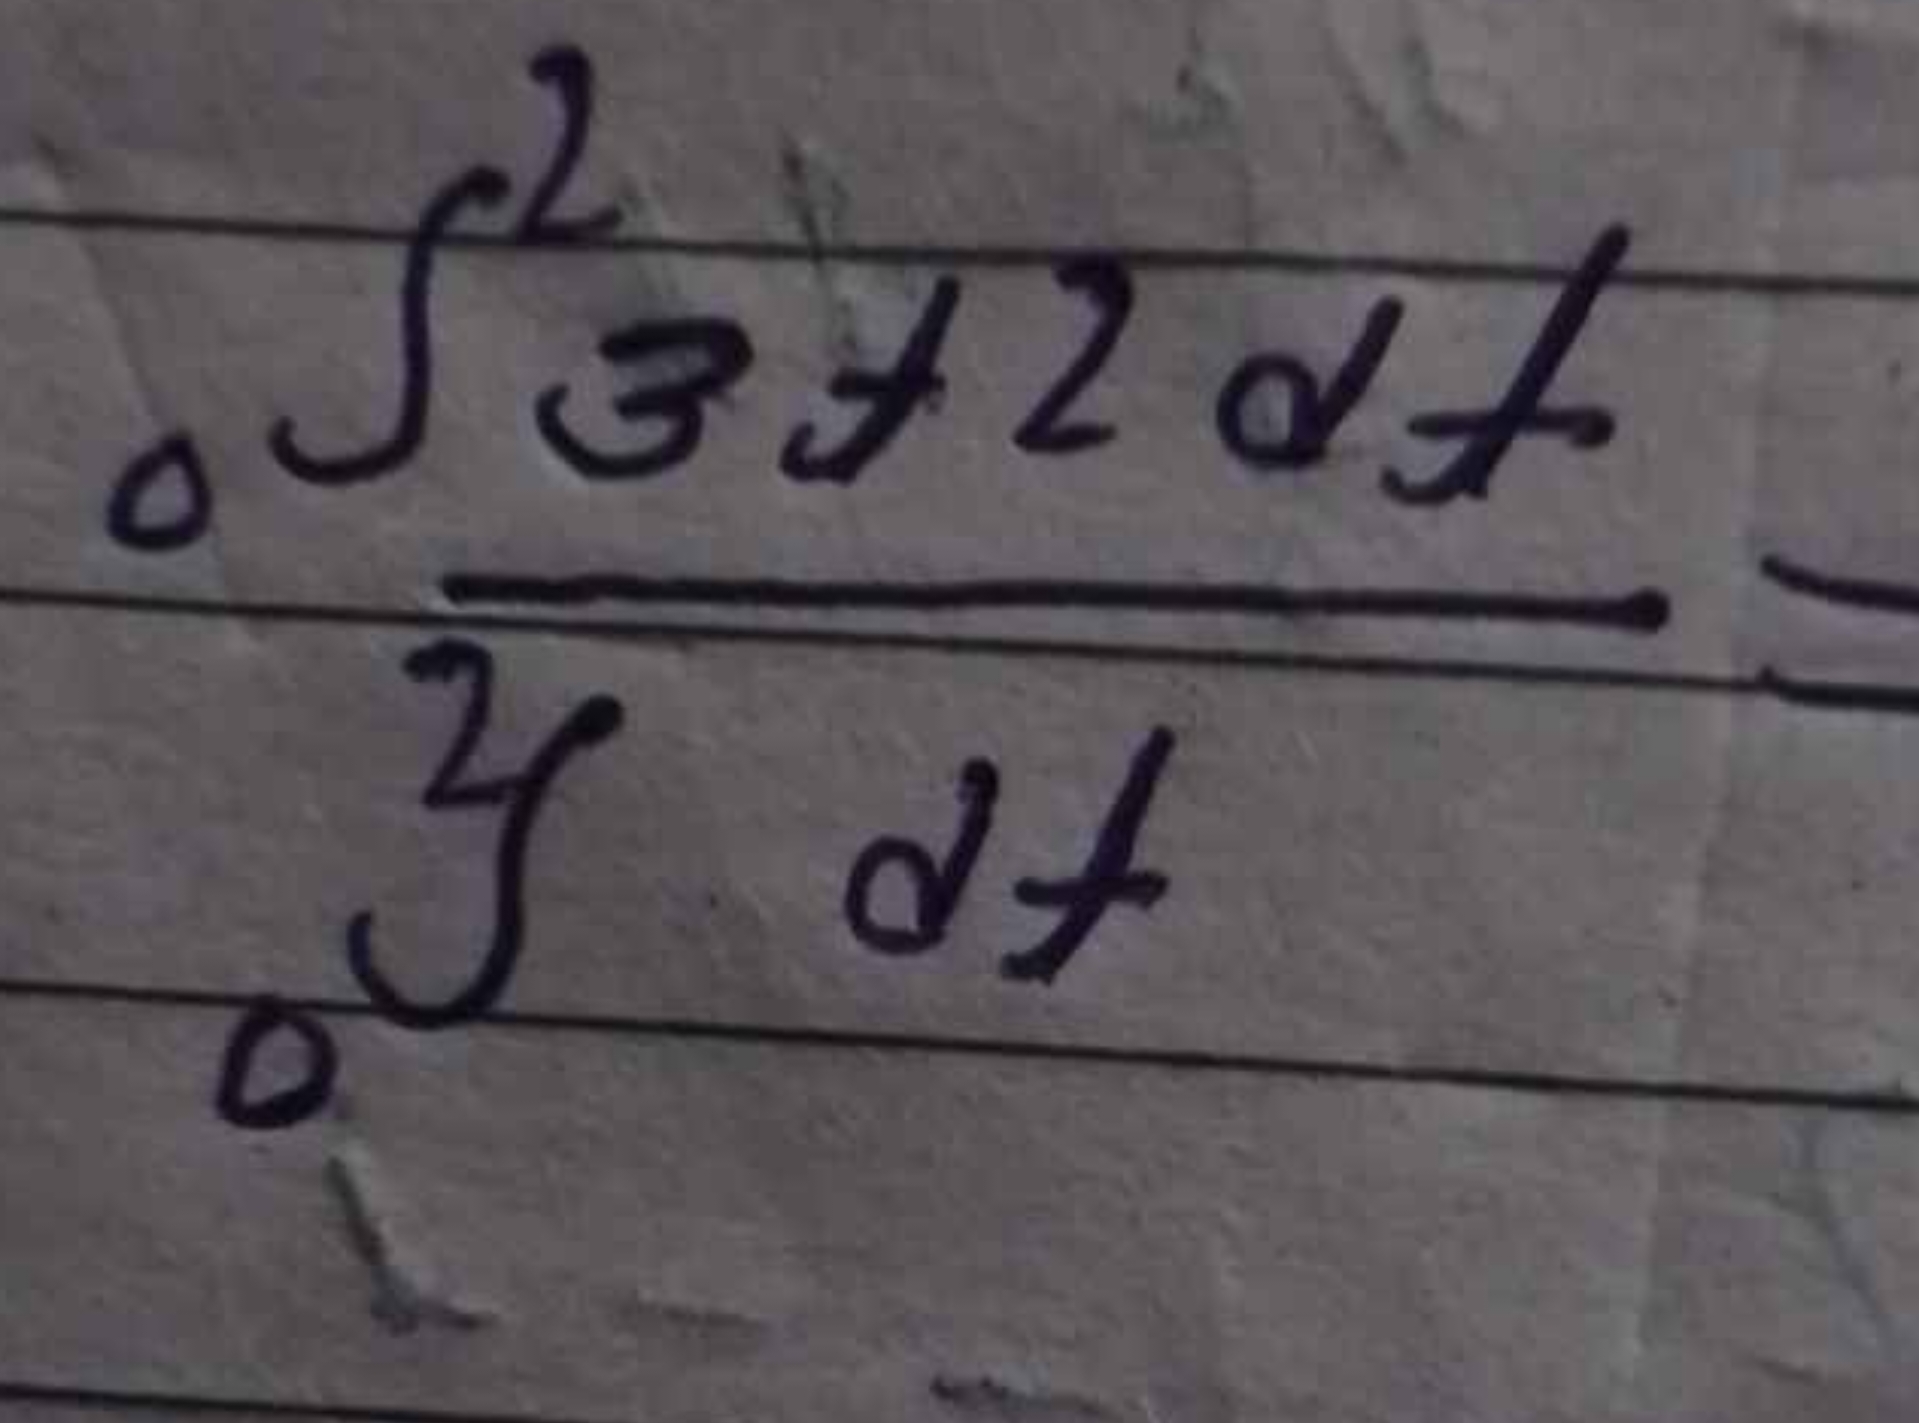 ₀∫² 3t2 dt
―――――― =
₀∫² dt